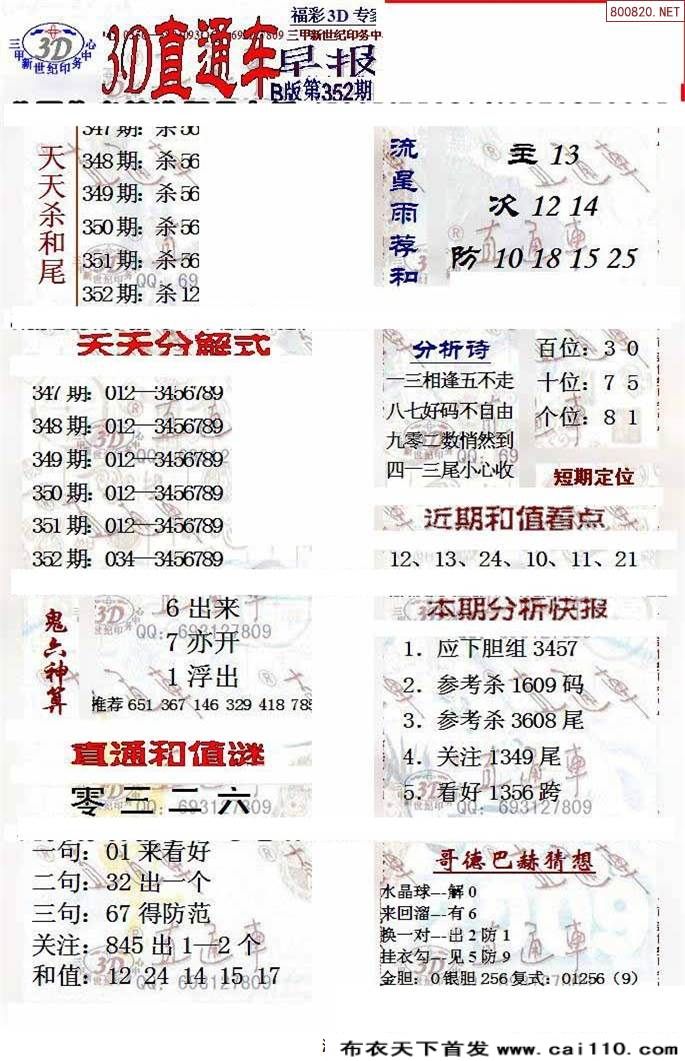 800820.NET
福彩3D 专家
三甲新世纪印务中心
3D
3D直通车
三甲新世纪印务中
早报
B版第352期
天天杀和尾
347期: 杀56
348期: 杀56
349期: 杀56
350期: 杀56
351期: 杀56
352期: 杀12
流星雨荐和
主 13
次 12 14
防 10 18 15 25
天天分解式
347 期: 012—3456789
348 期: 012—3456789
349 期: 012—3456789
350 期: 012—3456789
351 期: 012—3456789
352 期: 034—3456789
分析诗
一三相逢五不走
八七好码不自由
九零二数悄然到
四一三尾小心收
百位: 3 0
十位: 7 5
个位: 8 1
短期定位
近期和值看点
12、13、24、10、11、21
鬼六神算
6 出来
7 亦开
1 浮出
QQ: 693127809
推荐 651 367 146 329 418 785
本期分析快报
1. 应下胆组 3457
2. 参考杀 1609 码
3. 参考杀 3608 尾
4. 关注 1349 尾
5. 看好 1356 跨
QQ: 693127809
直通和值谜
零三二六
一句: 01 来看好
二句: 32 出一个
三句: 67 得防范
关注: 845 出 1—2 个
和值: 12 24 14 15 17
QQ: 693127809
哥德巴赫猜想
水晶球---解 0
来回溜---有 6
换一对---出 2 防 1
挂衣勾---见 5 防 9
金胆: 0 银胆 256 复式: 01256 (9)
布衣天下首发 www.cai110.com